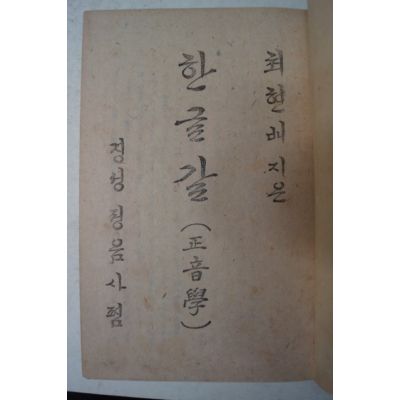 최현배 지은
한글갈 (正音學)
경성 정음사 폄